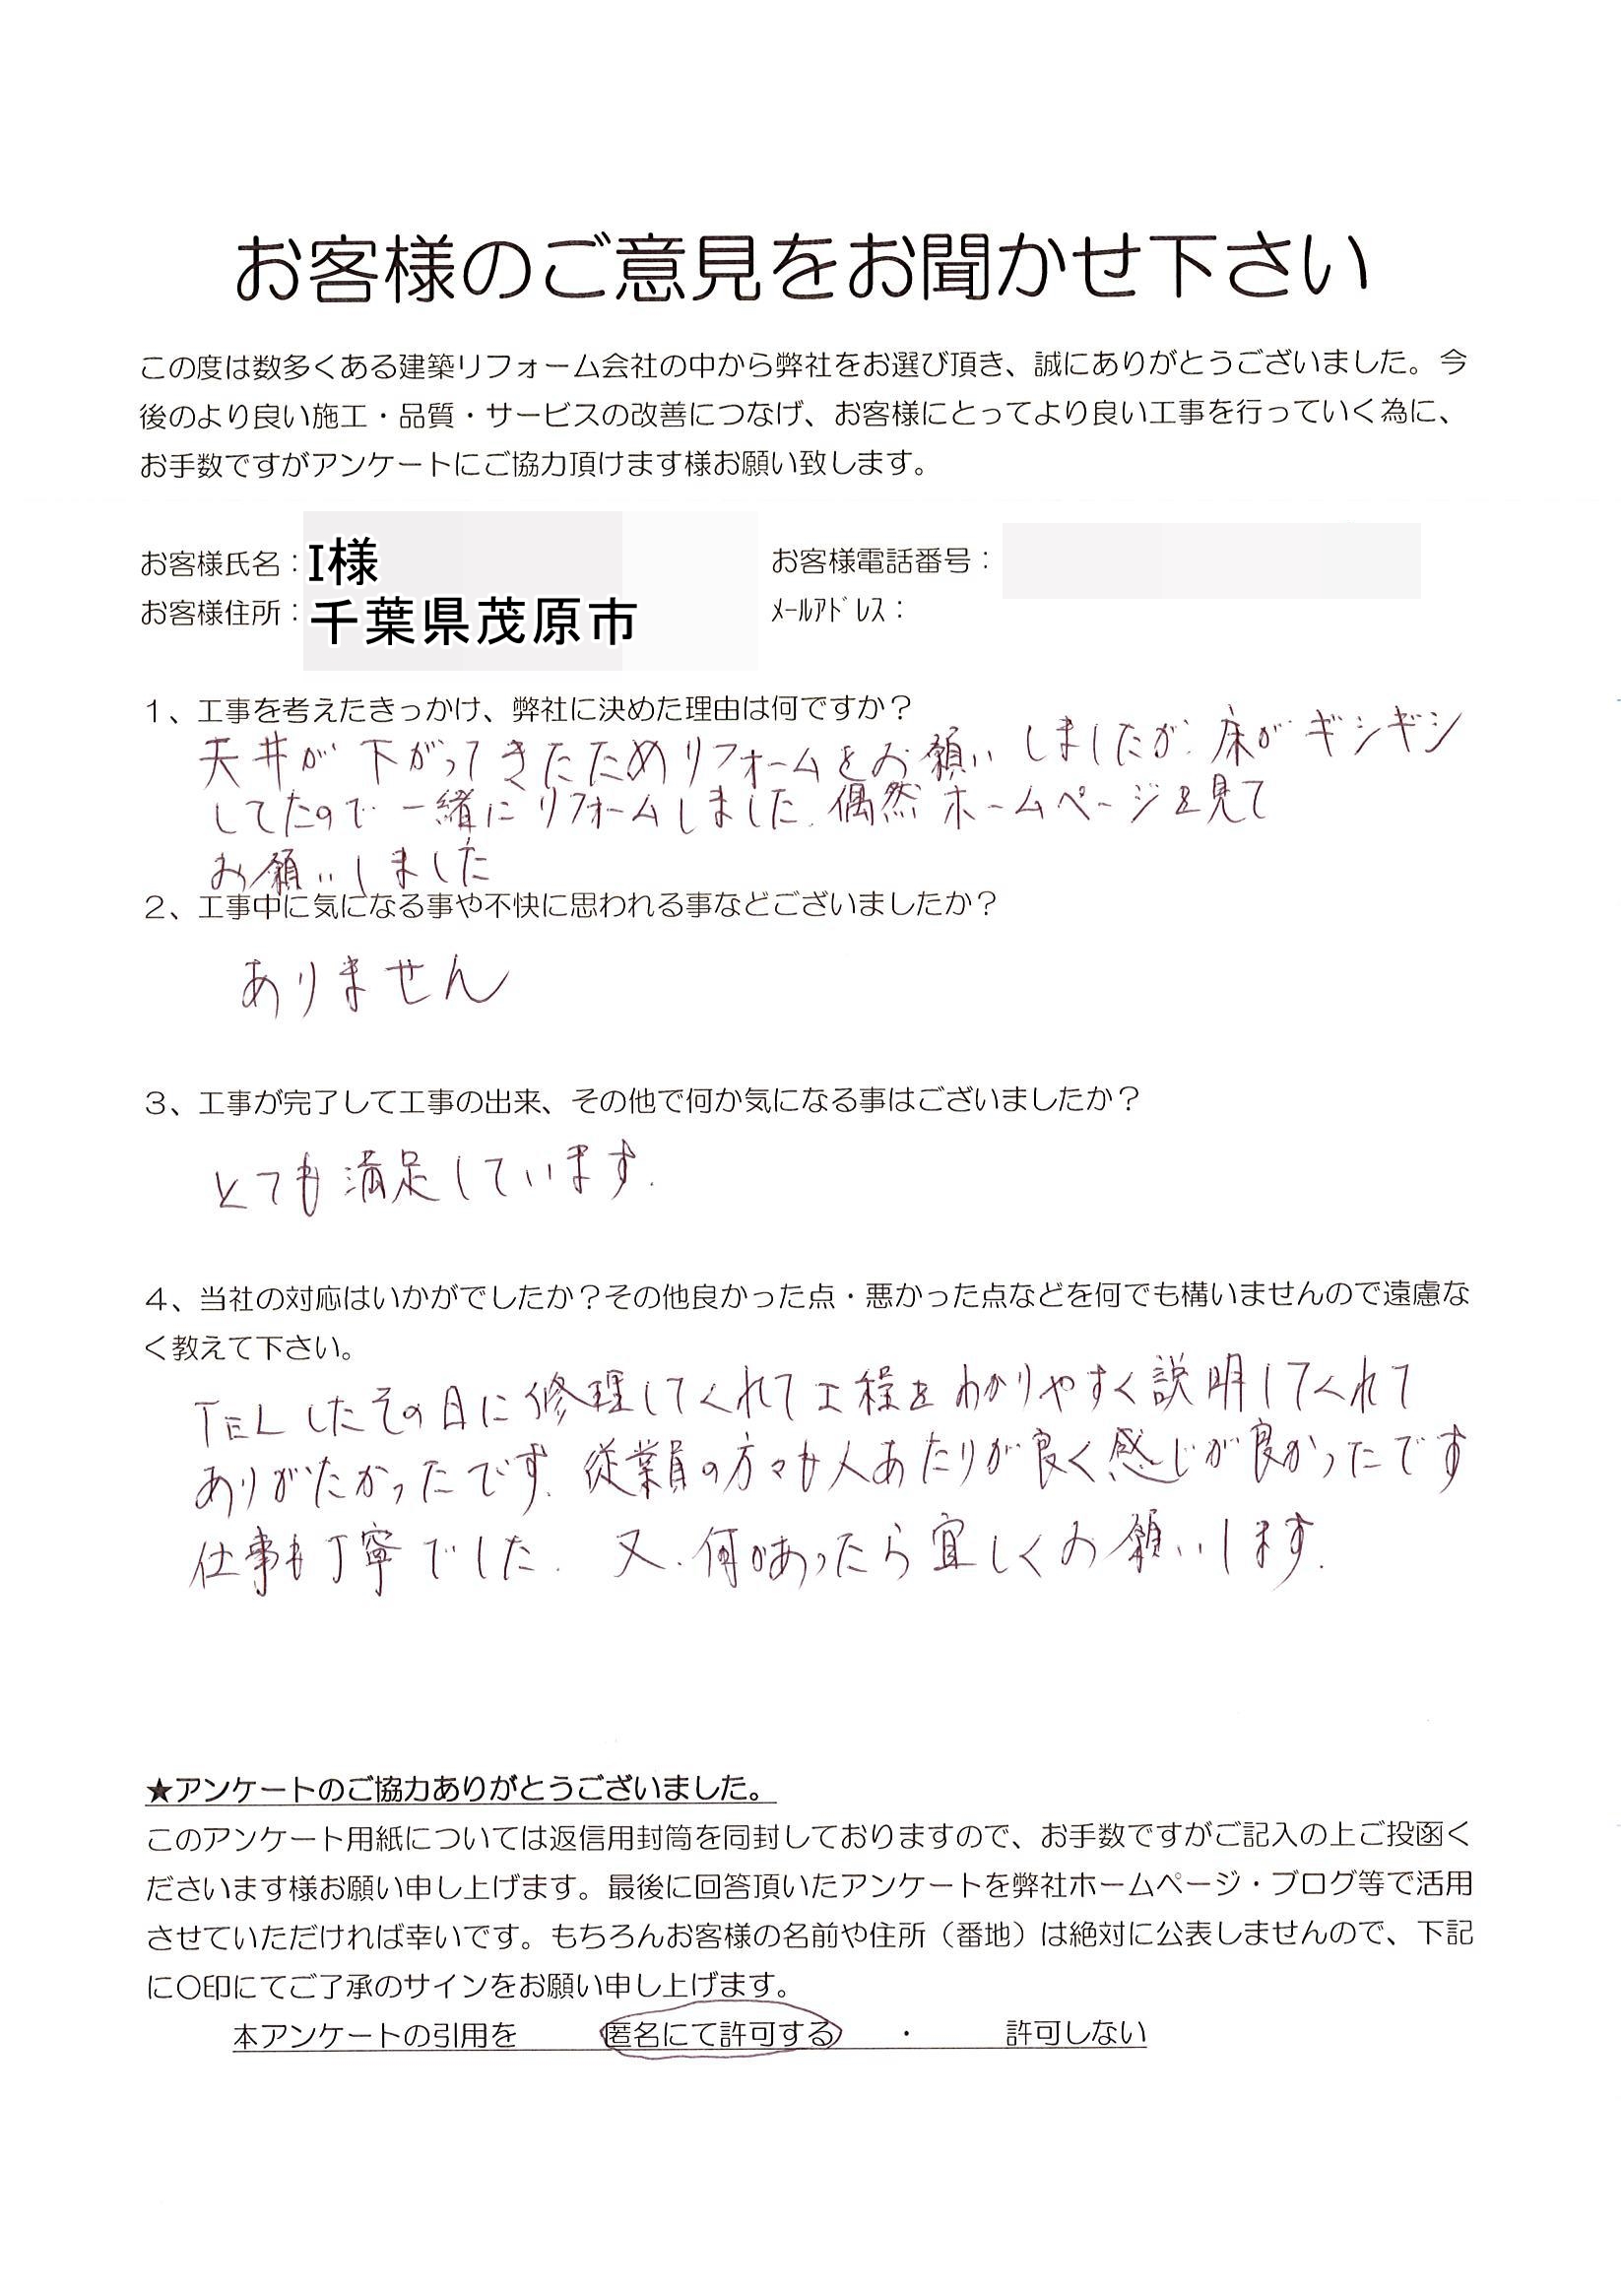 お客様のご意見をお聞かせ下さい
この度は数多くある建築リフォーム会社の中から弊社をお選び頂き、誠にありがとうございました。今
後のより良い施工・品質・サービスの改善につなげ、お客様にとってより良い工事を行っていく為に、
お手数ですがアンケートにご協力頂けます様お願い致します。
お客様氏名：I様 お客様電話番号：
お客様住所：千葉県茂原市 ﾒｰﾙｱﾄﾞﾚｽ：
1、工事を考えたきっかけ、弊社に決めた理由は何ですか？
天井が下がってきたためリフォームをお願いしましたが、床がギシギシ
してたので一緒にリフォームしました。偶然ホームページを見て
お願いしました
2、工事中に気になる事や不快に思われる事などございましたか？
ありません
3、工事が完了して工事の出来、その他で何か気になる事はございましたか？
とても満足しています.
4、当社の対応はいかがでしたか？その他良かった点・悪かった点などを何でも構いませんので遠慮な
く教えて下さい。
TELしたその日に修理してくれて工程をわかりやすく説明してくれて
ありがたかったです. 従業員の方々も人あたりが良く感じが良かったです
仕事も丁寧でした. 又、何かあったら宜しくお願いします.
★アンケートのご協力ありがとうございました。
このアンケート用紙については返信用封筒を同封しておりますので、お手数ですがご記入の上ご投函く
ださいます様お願い申し上げます。最後に回答頂いたアンケートを弊社ホームページ・ブログ等で活用
させていただければ幸いです。もちろんお客様の名前や住所（番地）は絶対に公表しませんので、下記
に〇印にてご了承のサインをお願い申し上げます。
本アンケートの引用を 匿名にて許可する ・ 許可しない